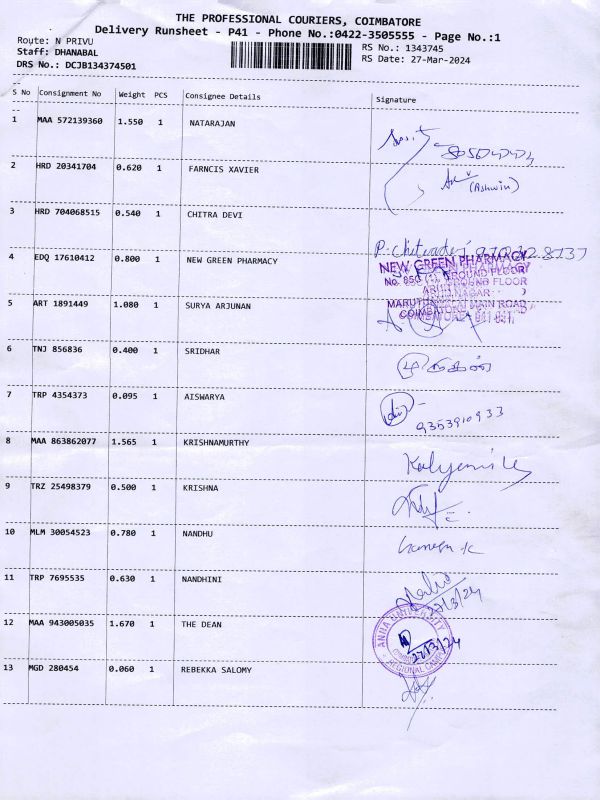 THE PROFESSIONAL COURIERS, COIMBATORE
Delivery Runsheet - P41 - Phone No.:0422-3505555 - Page No.:1
Route: N PRIVU
Staff: DHANABAL
DRS No.: DCJB134374501
RS No.: 1343745
RS Date: 27-Mar-2024
S No Consignment No Weight PCS Consignee Details Signature
1 MAA 572139360 1.550 1 NATARAJAN
2 HRD 20341704 0.620 1 FARNCIS XAVIER
(Ashwin)
3 HRD 704068515 0.540 1 CHITRA DEVI
4 EDQ 17610412 0.800 1 NEW GREEN PHARMACY
NEW GREEN PHARMACY
GROUND FLOOR
MAIN ROAD
5 ART 1891449 1.080 1 SURYA ARJUNAN
6 TNJ 856836 0.400 1 SRIDHAR
முருகன்
7 TRP 4354373 0.095 1 AISWARYA
9353910933
8 MAA 863862077 1.565 1 KRISHNAMURTHY
9 TRZ 25498379 0.500 1 KRISHNA
10 MLM 30054523 0.780 1 NANDHU
11 TRP 7695535 0.630 1 NANDHINI
27/3/24
12 MAA 943005035 1.670 1 THE DEAN
ANNA UNIVERSITY
27/3/24
REGIONAL CAMPUS
13 MGD 280454 0.060 1 REBEKKA SALOMY